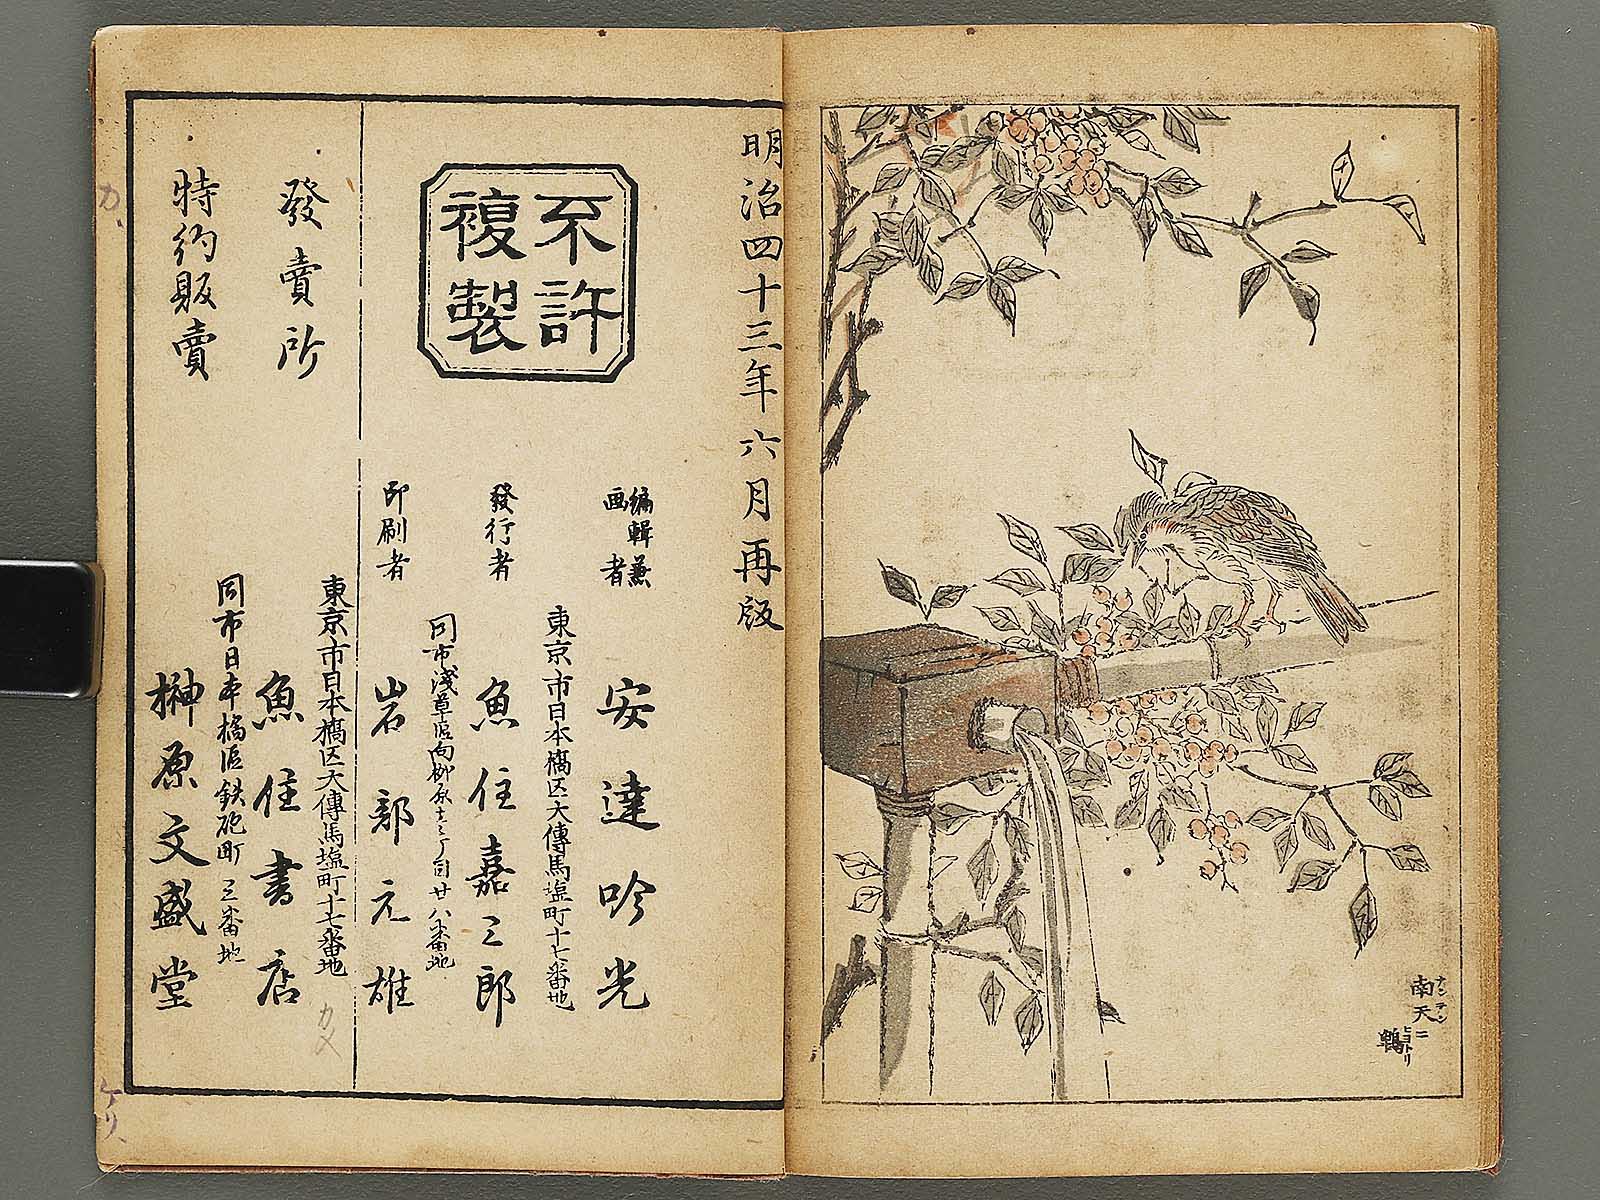 南天ニ
ナンテン
鵯
ヒヨトリ
明治四十三年六月再版
不許
複製
編輯兼
画者
東京市日本橋区大傳馬塩町十七番地
安達吟光
發行者
魚住嘉三郎
同市淺草區向柳原
廿八番地
印刷者
岩部元雄
發賣所
東京市日本橋区大傳馬塩町十七番地
魚住書店
特約販賣
同市日本橋區鉄砲町三番地
榊原文盛堂